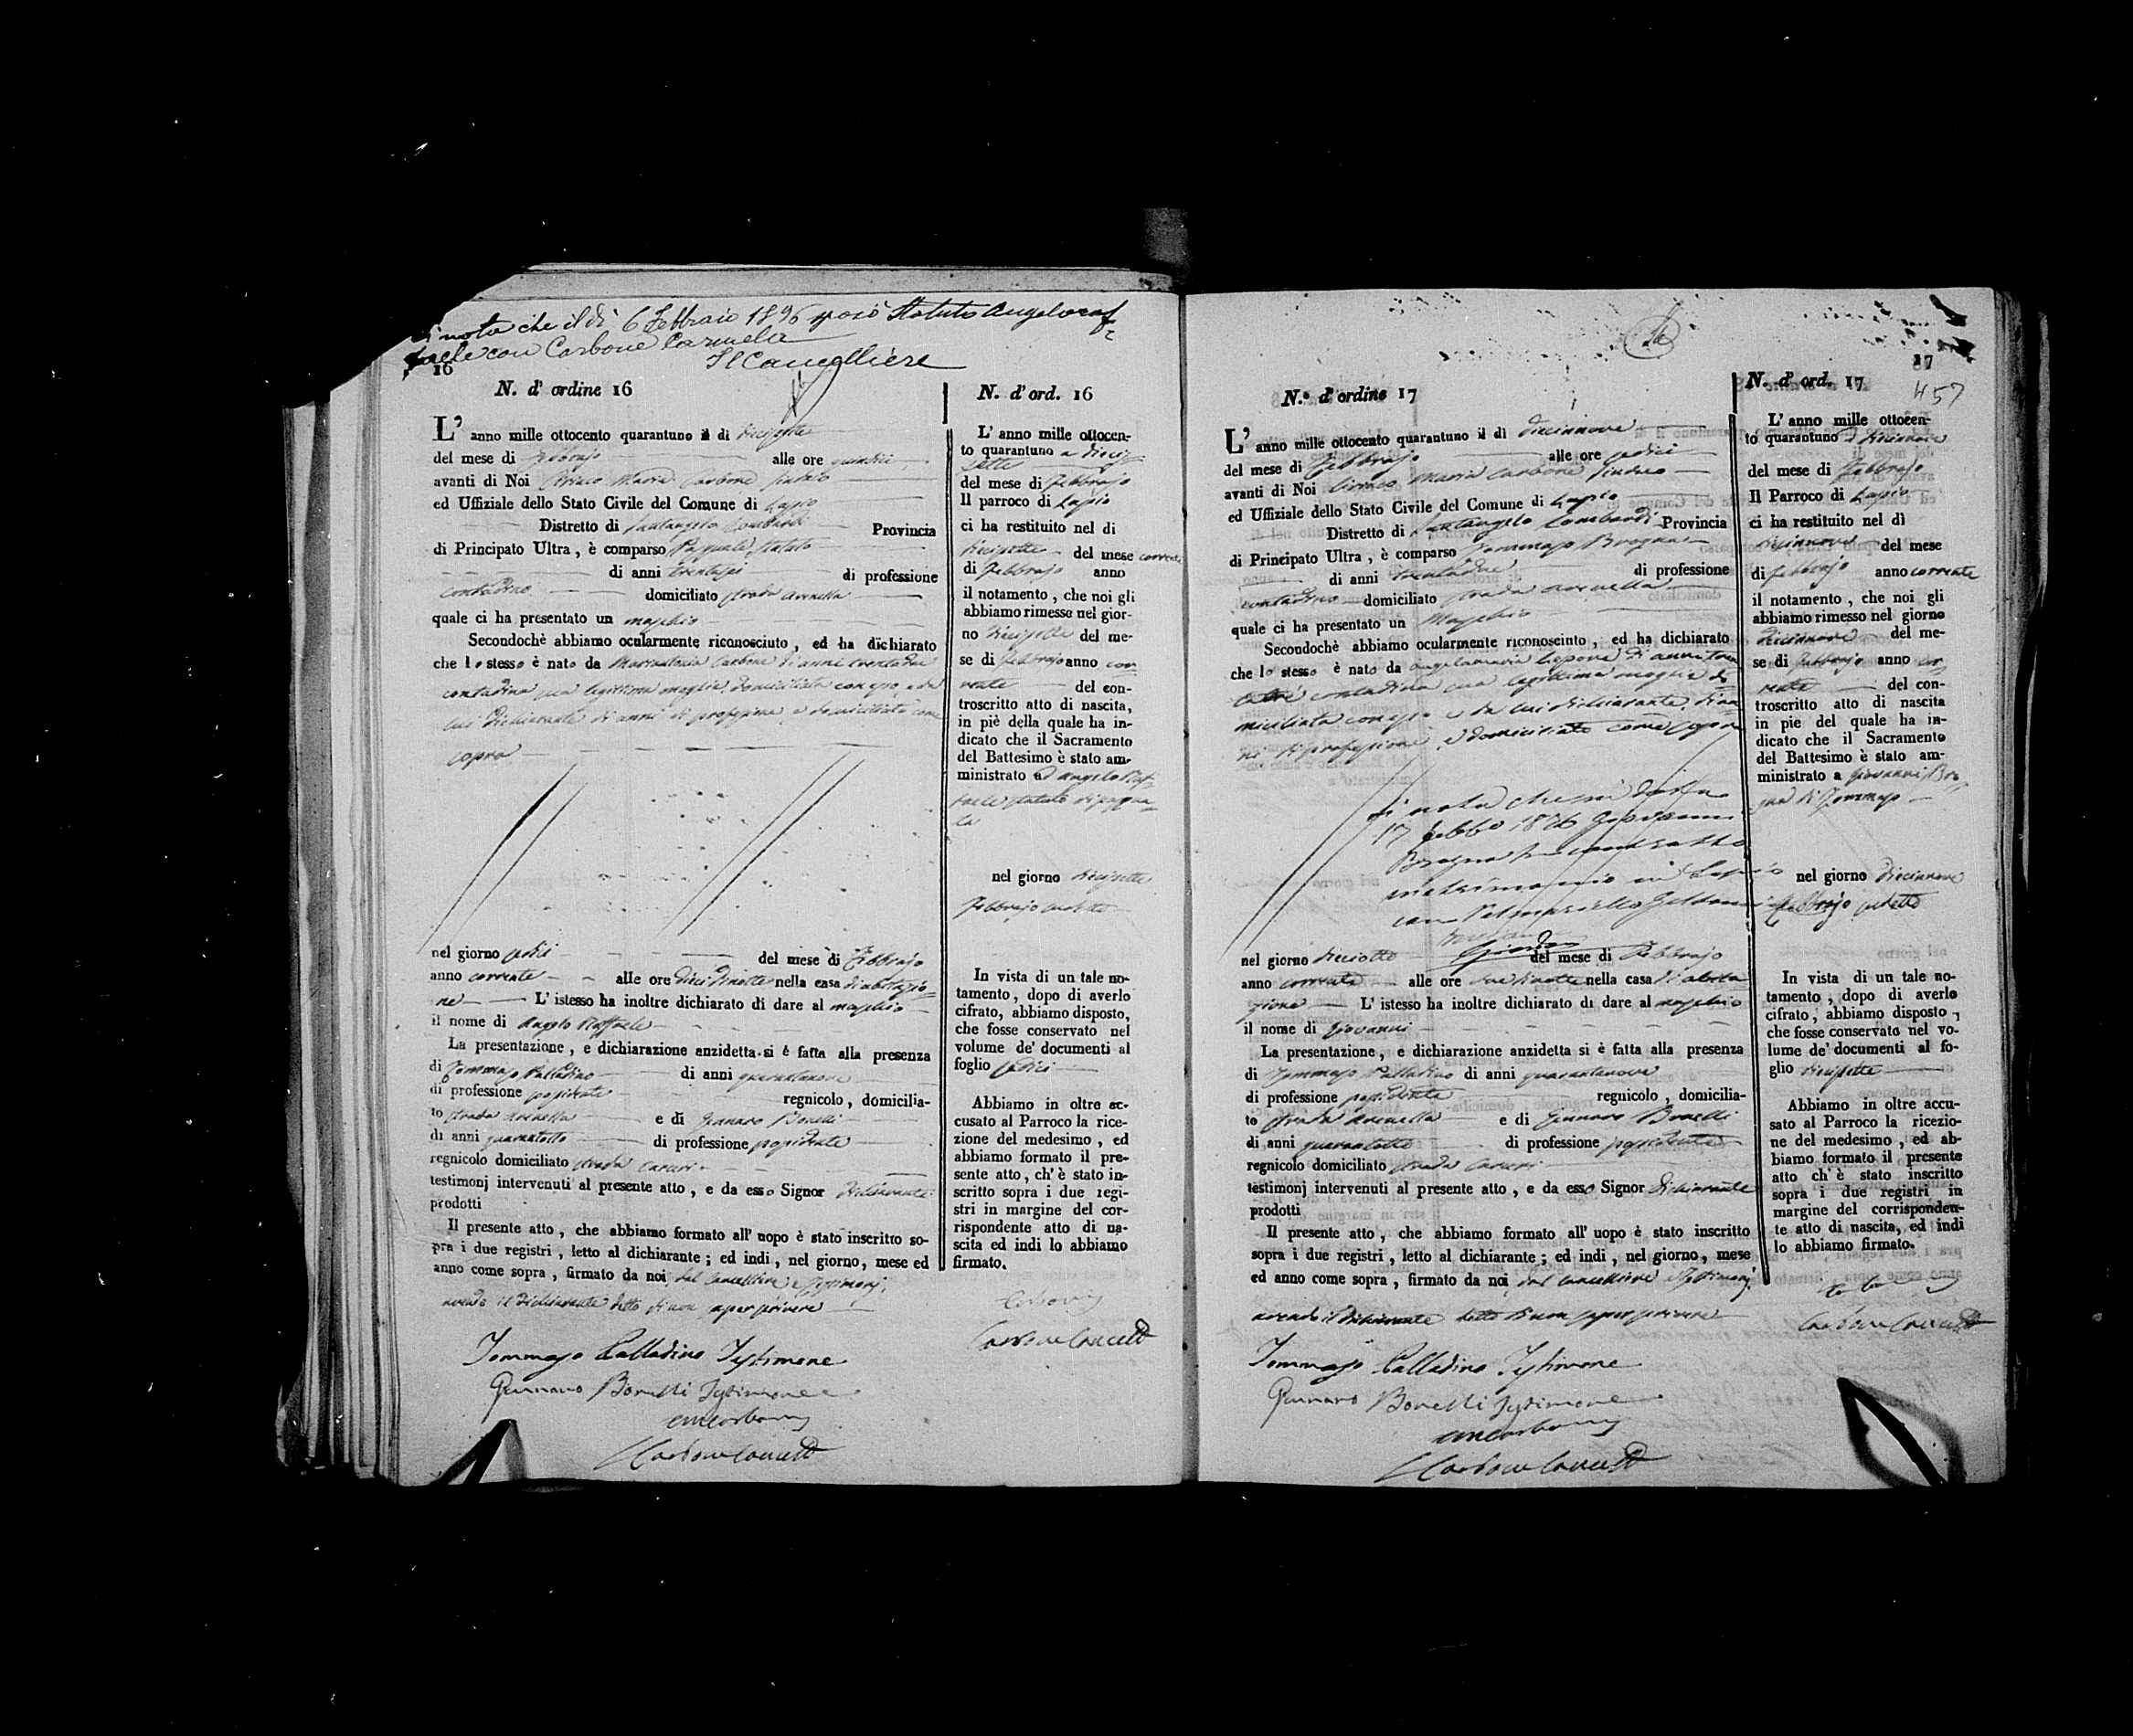 Si nota che il dì 6 Febbraio 1896 sposò Statuto Angeloraf=
faele con Carbone Carmela
Il Cancelliere
16
N. d' ordine 16
L' anno mille ottocento quarantuno il di diciassette
del mese di Febbrajo alle ore quindici
avanti di Noi Ciriaco Maria Carbone Sindaco
ed Uffiziale dello Stato Civile del Comune di Lapio
Distretto di Santangelo Lombardi Provincia
di Principato Ultra, è comparso Pasquale Statuto
di anni trentasei di professione
contadino domiciliato strada Arenella
quale ci ha presentato un maschio
Secondochè abbiamo ocularmente riconosciuto, ed ha dichiarato
che lo stesso è nato da Mariantonia Carbone di anni trentadue
contadina sua legittima moglie domiciliata con esso, e da
lui dichiarante di anni di professione e domiciliato come
sopra
nel giorno sedici del mese di Febbrajo
anno corrente alle ore dieci di notte nella casa di abitazio=
ne L' istesso ha inoltre dichiarato di dare al maschio
il nome di Angelo Raffaele
La presentazione, e dichiarazione anzidetta si è fatta alla presenza
di Tommaso Palladino di anni quarantanove
di professione possidente regnicolo, domicilia-
to strada Arenella e di Gennaro Bonelli
di anni quarantotto di professione possidente
regnicolo domiciliato strada
testimonj intervenuti al presente atto, e da esso Signor dichiarante
prodotti
Il presente atto, che abbiamo formato all' uopo è stato inscritto so-
pra i due registri, letto al dichiarante; ed indi, nel giorno, mese ed
anno come sopra, firmato da noi, dal Cancelliere e testimonj,
avendo il dichiarante detto di non saper scrivere
Tommaso Palladino Testimone
Gennaro Bonelli Testimone
Carbone Cancell
N. d' ord. 16
L' anno mille ottocen-
to quarantuno a dicias
sette
del mese di Febbrajo
Il parroco di Lapio
ci ha restituito nel di
diciassette del mese corrente
di Febbrajo anno
il notamento, che noi gli
abbiamo rimesse nel gior-
no diciassette del me-
se di Febbrajo anno cor
rente del con-
troscritto atto di nascita,
in piè della quale ha in-
dicato che il Sacramento
del Battesimo è stato am-
ministrato ad Angelo Raf-
faele Statuto di Pasqua-
le
nel giorno diciassette
Febbrajo suddetto
In vista di un tale no-
tamento, dopo di averlo
cifrato, abbiamo disposto,
che fosse conservato nel
volume de' documenti al
foglio sedici
Abbiamo in oltre ac-
cusato al Parroco la rice-
zione del medesimo, ed
abbiamo formato il pre-
sente atto, ch' è stato in-
scritto sopra i due regi-
stri in margine del cor-
rispondente atto di na-
scita ed indi lo abbiamo
firmato.
Carbone
Carbone Cancell
17
457
N.° d' ordine 17
L' anno mille ottocento quarantuno il di diciannove
del mese di Febbrajo alle ore sedici
avanti di Noi Ciriaco Maria Carbone Sindaco
ed Uffiziale dello Stato Civile del Comune di Lapio
Distretto di Santangelo Lombardi Provincia
di Principato Ultra, è comparso Tommaso Brogna
di anni trentadue di professione
contadino domiciliato strada Arenella
quale ci ha presentato un Maschio
Secondochè abbiamo ocularmente riconosciuto, ed ha dichiarato
che lo stesso è nato da Angelamaria di anni tren
tatre contadina sua legittima moglie do
miciliata con esso e da lui dichiarante, di an
ni di professione, e domiciliato come sopra
Si nota che
17 Febb° 1876 Giovanni
Brogna ha contratto
matrimonio in Lapio
con
nel giorno diciotto del mese di Febbrajo
anno corrente alle ore due di notte nella casa di abita
zione L' istesso ha inoltre dichiarato di dare al maschio
il nome di Giovanni
La presentazione, e dichiarazione anzidetta si è fatta alla presenza
di Tommaso Palladino di anni quarantanove
di professione possidente regnicolo, domicilia-
to strada Arenella e di Gennaro Bonelli
di anni quarantotto di professione possidente
regnicolo domiciliato strada
testimonj intervenuti al presente atto, e da esso Signor dichiarante
prodotti
Il presente atto, che abbiamo formato all' uopo è stato inscritto
sopra i due registri, letto al dichiarante; ed indi, nel giorno, mese
ed anno come sopra, firmato da noi, dal Cancelliere e testimonj
avendo il dichiarante detto di non saper scrivere
Tommaso Palladino Testimone
Gennaro Bonelli Testimone
Carbone Cancell
N. d' ord. 17
L' anno mille ottocen-
to quarantuno a diciannove
del mese di Febbrajo
Il Parroco di Lapio
ci ha restituito nel dì
diciannove del mese
di Febbrajo anno corrente
il notamento, che noi gli
abbiamo rimesso nel giorno
diciannove del me-
se di Febbrajo anno cor
rente del con-
troscritto atto di nascita
in pie del quale ha in-
dicato che il Sacramento
del Battesimo è stato am-
ministrato a Giovanni Bro
gna di Tommaso
nel giorno diciannove
Febbrajo suddetto
In vista di un tale no-
tamento, dopo di averlo
cifrato, abbiamo disposto,
che fosse conservato nel vo-
lume de' documenti al fo-
glio diciassette
Abbiamo in oltre accu-
sato al Parroco la ricezio-
ne del medesimo, ed ab-
biamo formato il presente
atto ch' è stato inscritto
sopra i due registri in
margine del corrisponden-
te atto di nascita, ed indi
lo abbiamo firmato.
Carbone Cancell